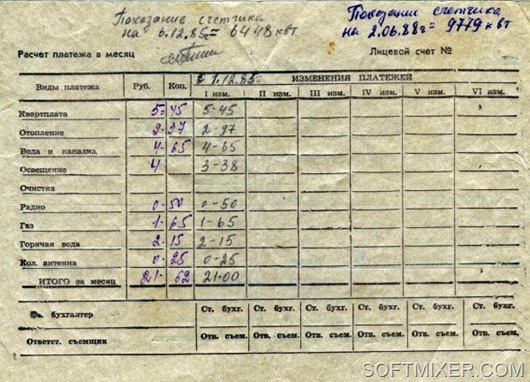 Показание счетчика
на 6.12.85г= 6448 квт
Показания счетчика
на 2.06.88г= 9779 квт
Расчет платежа в месяц
Лицевой счет №
Виды платежа Руб. Коп. с 1.12.85г. ИЗМЕНЕНИЯ ПЛАТЕЖЕЙ
I изм. II изм. III изм. IV изм. V изм. VI изм.
Квартплата 5-45 5-45
Отопление 2-97 2-97
Вода и канализ. 4-65 4-65
Освещение 4 3-38
Очистка
Радио 0-50 0-50
Газ 1-65 1-65
Горячая вода 2-15 2-15
Кол. антенна 0-25 0-25
ИТОГО за месяц 21-62 21-00
бухгалтер Ст. бухг. Ст. бухг. Ст. бухг. Ст. бухг. Ст. бухг. Ст. бухг.
Ответст. съемщик Отв. съем. Отв. съем. Отв. съем. Отв. съем. Отв. съем. Отв. съем.
SOFTMIXER.COM